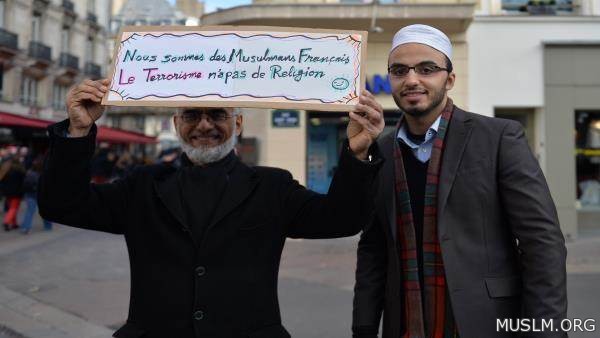 Nous sommes des Musulmans Français
Le Terrorisme n'a pas de Religion
MUSLM.ORG